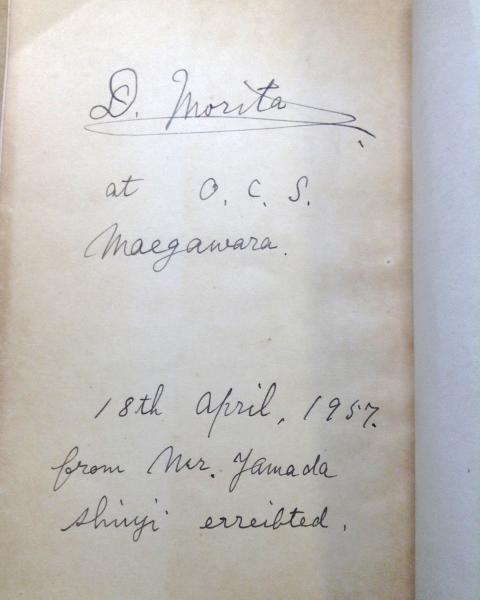 D. Morita
at O. C. S.
Maegawara.
18th April, 1957.
from Mr. Yamada
Shinji erreibted.